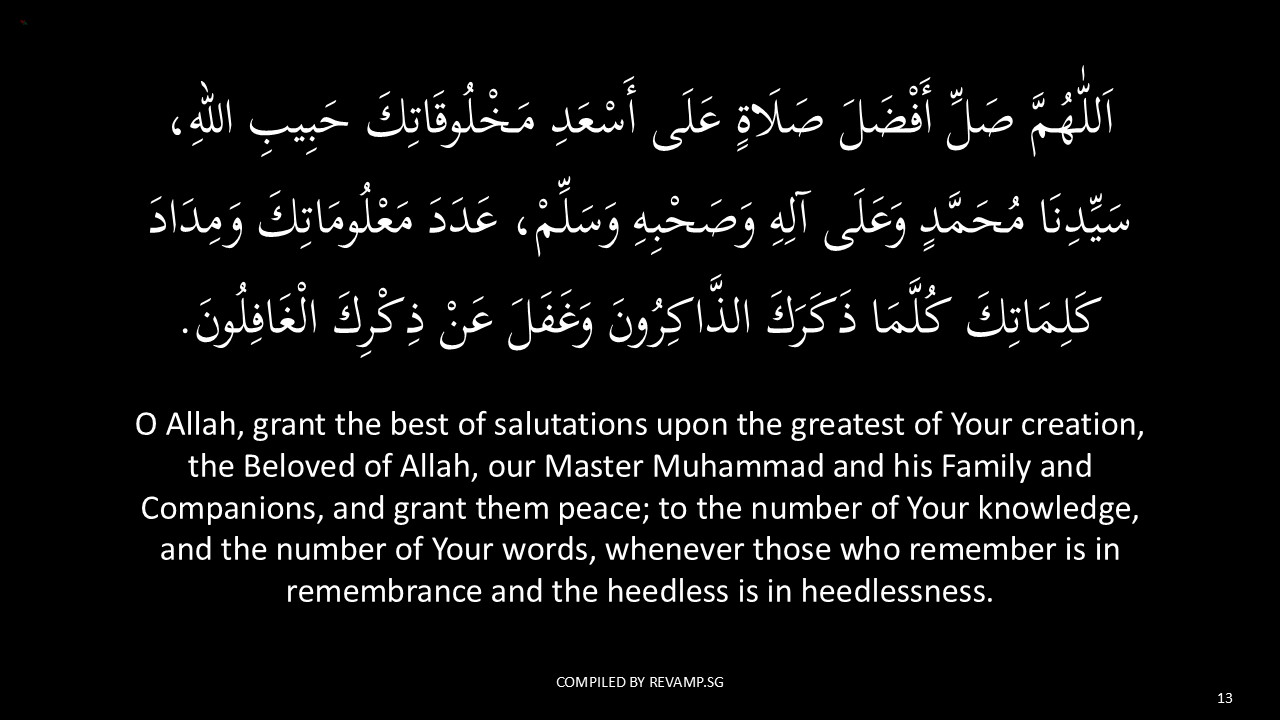 اَللّٰهُمَّ صَلِّ أَفْضَلَ صَلَاةٍ عَلَى أَسْعَدِ مَخْلُوقَاتِكَ حَبِيبِ اللهِ،
سَيِّدِنَا مُحَمَّدٍ وَعَلَى آلِهِ وَصَحْبِهِ وَسَلِّمْ، عَدَدَ مَعْلُومَاتِكَ وَمِدَادَ
كَلِمَاتِكَ كُلَّمَا ذَكَرَكَ الذَّاكِرُونَ وَغَفَلَ عَنْ ذِكْرِكَ الْغَافِلُونَ.
O Allah, grant the best of salutations upon the greatest of Your creation,
the Beloved of Allah, our Master Muhammad and his Family and
Companions, and grant them peace; to the number of Your knowledge,
and the number of Your words, whenever those who remember is in
remembrance and the heedless is in heedlessness.
COMPILED BY REVAMP.SG
13